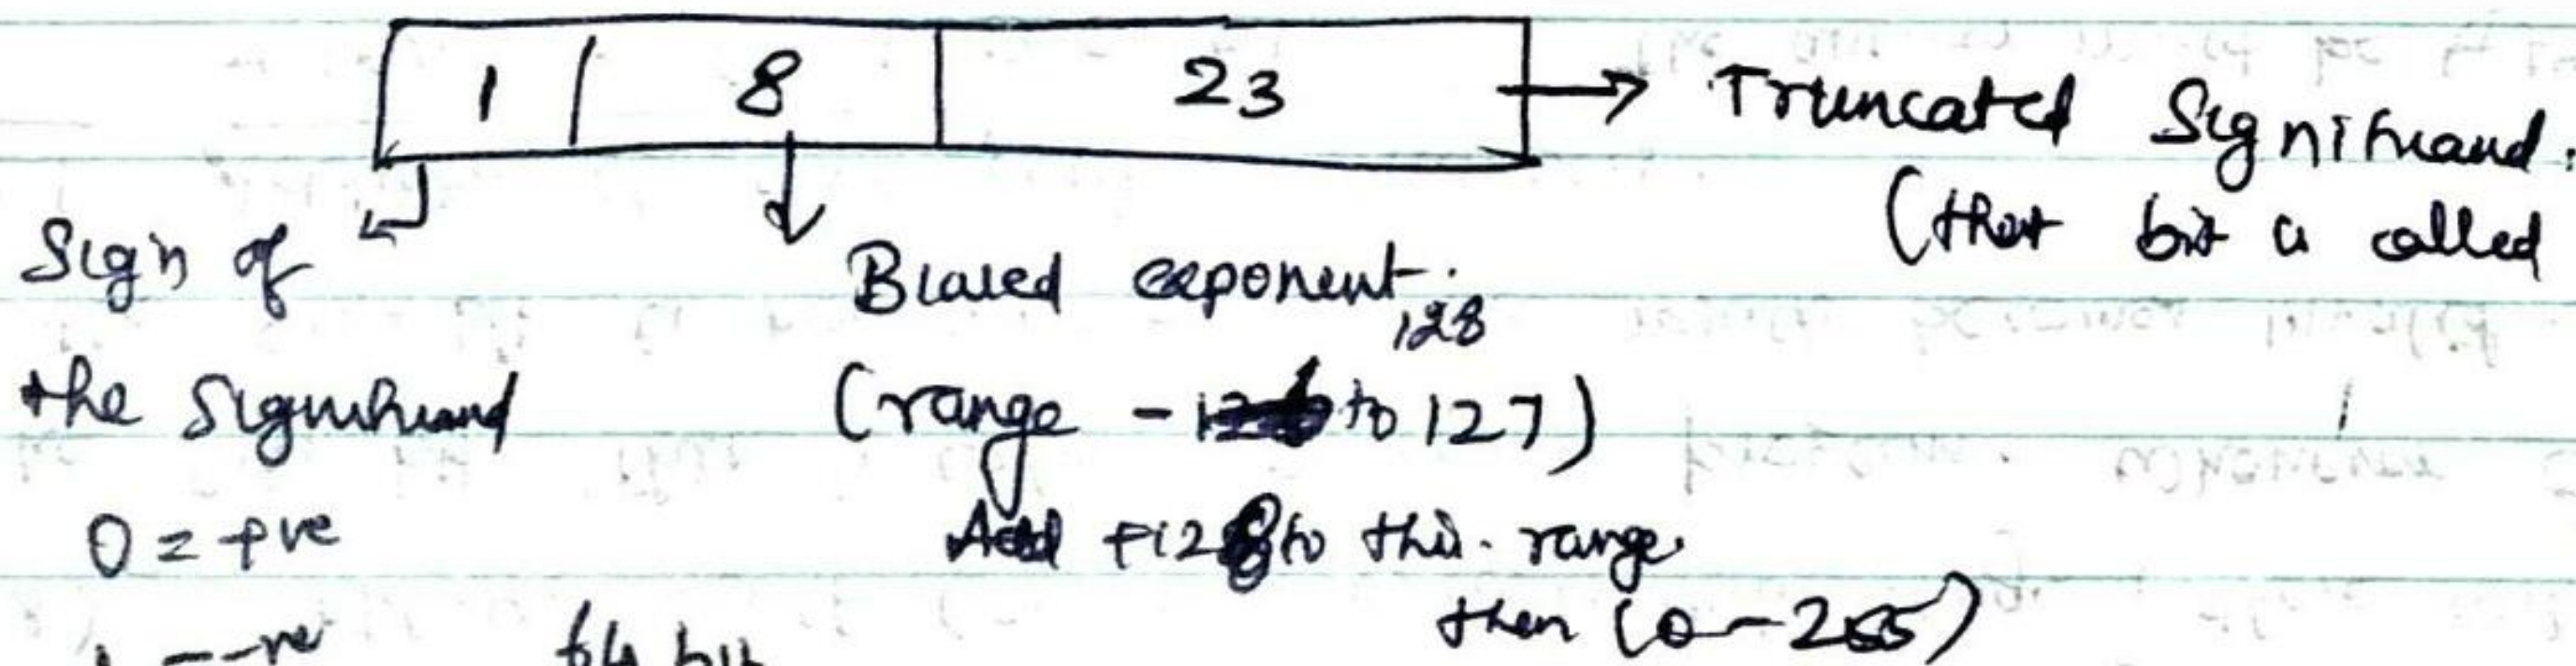 1 8 23 → Truncated Significand.
(that bit is called
Sign of
the Significand
0 = +ve
1 = -ve
Biased exponent.
128
(range - to 127)
Add +128 to this range
then (0-255)
64 bit